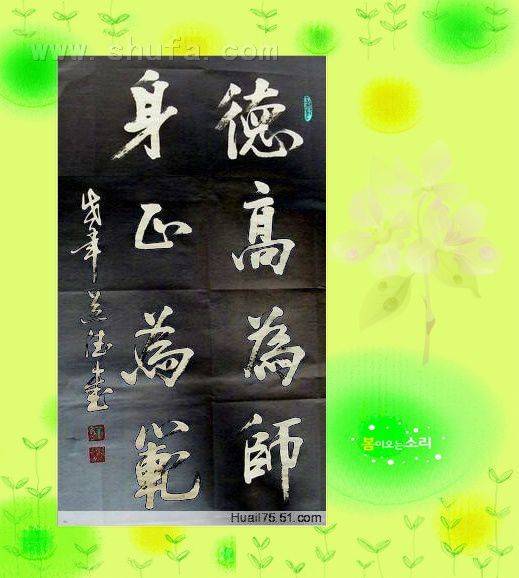 www.shufa.com
德高為師
身正為範
봄이오는소리
Huail75.51.com